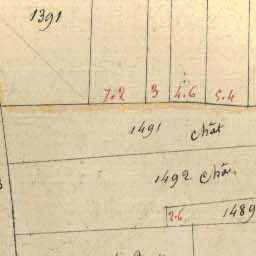 1391
7.2 3 4.6 5.4
1491 chăt
1492 chă
2.6 1489